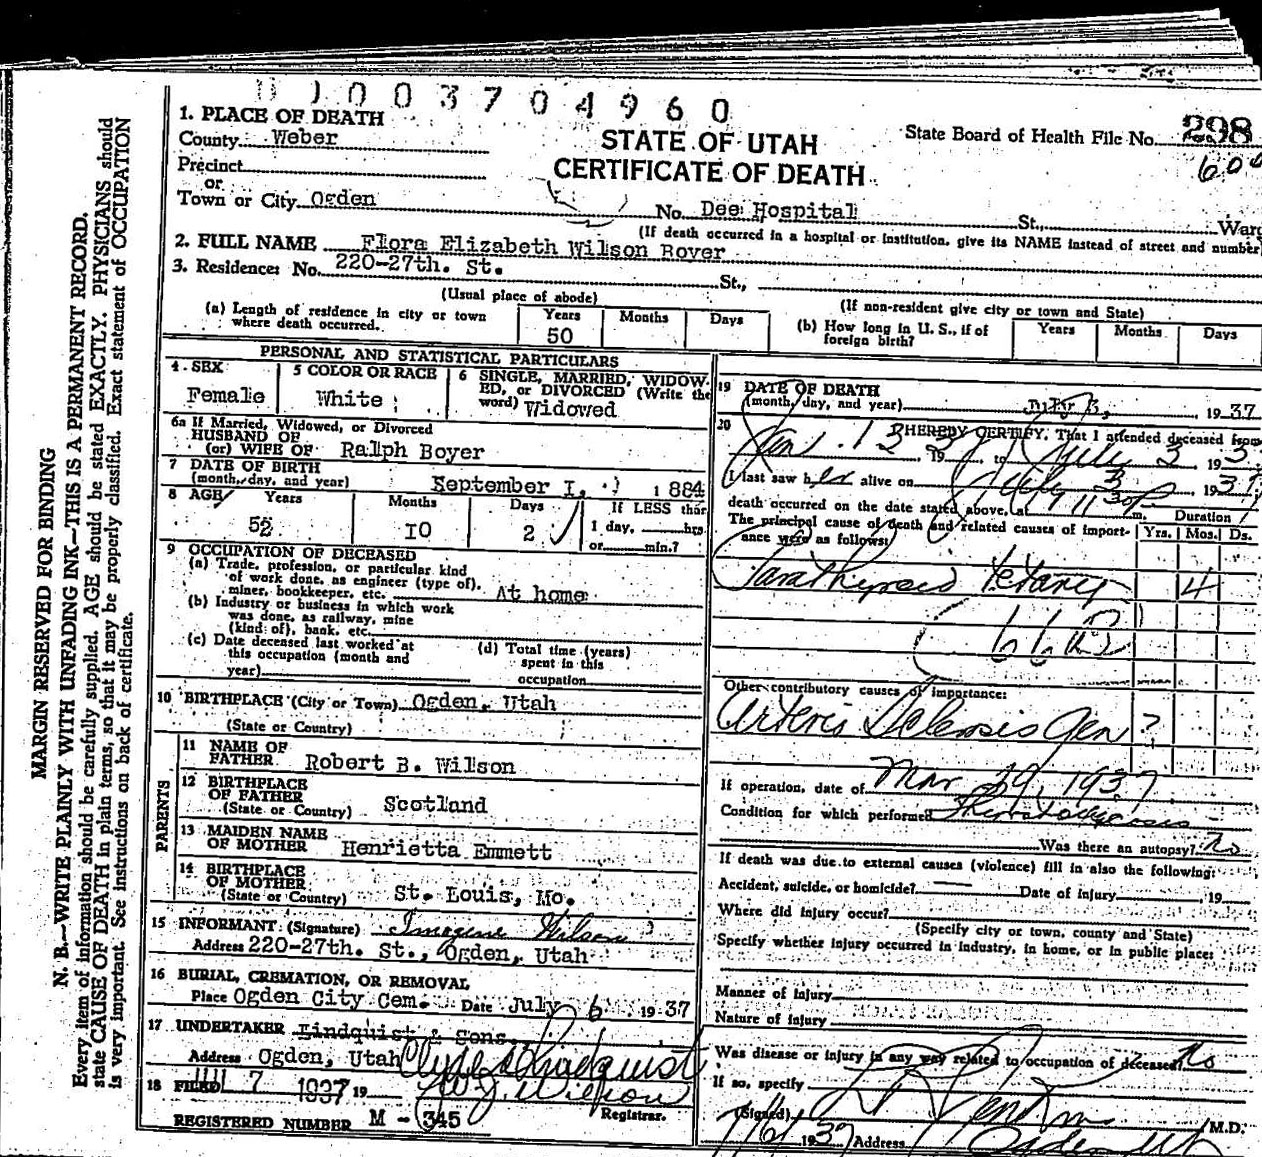 MARGIN RESERVED FOR BINDING
N. B.—WRITE PLAINLY WITH UNFADING INK—THIS IS A PERMANENT RECORD.
Every item of information should be carefully supplied. AGE should be stated EXACTLY. PHYSICIANS should
state CAUSE OF DEATH in plain terms, so that it may be properly classified. Exact statement of OCCUPATION
is very important. See instructions on back of certificate.
003704960
1. PLACE OF DEATH
County Weber
Precinct
or
Town or City Ogden
STATE OF UTAH
CERTIFICATE OF DEATH
State Board of Health File No. 298
600
No. Dee Hospital St., Ward
(If death occurred in a hospital or institution, give its NAME instead of street and number
2. FULL NAME Flora Elizabeth Wilson Boyer
3. Residence: No. 220-27th. St. St.,
(Usual place of abode) (If non-resident give city or town and State)
(a) Length of residence in city or town where death occurred. Years 50 Months Days
(b) How long in U. S., if of foreign birth? Years Months Days
PERSONAL AND STATISTICAL PARTICULARS
4. SEX Female
5 COLOR OR RACE White
6 SINGLE, MARRIED, WIDOWED, or DIVORCED (Write the word) Widowed
6a If Married, Widowed, or Divorced
HUSBAND OF
(or) WIFE OF Ralph Boyer
7 DATE OF BIRTH
(month, day, and year) September I, 1884
8 AGE Years 52 Months IO Days 2
If LESS than
1 day, hrs.
or min.?
9 OCCUPATION OF DECEASED
(a) Trade, profession, or particular kind
of work done, as engineer (type of),
miner, bookkeeper, etc. At home
(b) Industry or business in which work
was done, as railway, mine
(kind of), bank, etc.
(c) Date deceased last worked at
this occupation (month and
year)
(d) Total time (years)
spent in this
occupation
10 BIRTHPLACE (City or Town) Ogden, Utah
(State or Country)
PARENTS
11 NAME OF
FATHER Robert B. Wilson
12 BIRTHPLACE
OF FATHER
(State or Country) Scotland
13 MAIDEN NAME
OF MOTHER Henrietta Emmett
14 BIRTHPLACE
OF MOTHER
(State or Country) St. Louis, Mo.
15 INFORMANT (Signature) Imogene Wilson
Address 220-27th. St., Ogden, Utah
16 BURIAL, CREMATION, OR REMOVAL
Place Ogden City Cem. Date July 6 1937
17 UNDERTAKER Lindquist & Sons
Address Ogden, Utah Clyde Lindquist
18 FILED JUL 7 1937 19 W.J. Wilson
Registrar.
REGISTERED NUMBER M - 345
19 DATE OF DEATH
(month, day, and year) July 3, 1937
20 I HEREBY CERTIFY, That I attended deceased from
Jan 1, 19 to July 3 193
I last saw her alive on July 3, 1937
death occurred on the date stated above, at 11 30 P m.
The principal cause of death and related causes of importance were as follows:
Duration
Yrs. Mos. Ds.
Parathyroid tetany 4
Other contributory causes of importance:
Arterio Sclerosis Gen ?
If operation, date of Mar 29, 1937
Condition for which performed Thyrotoxicosis
Was there an autopsy? No
If death was due to external causes (violence) fill in also the following:
Accident, suicide, or homicide? Date of injury, 19
Where did injury occur?
(Specify city or town, county and State)
Specify whether injury occurred in industry, in home, or in public place:
Manner of injury
Nature of injury
Was disease or injury in any way related to occupation of deceased? No
If so, specify
(Signed) M.D.
1937 Address Ogden Ut